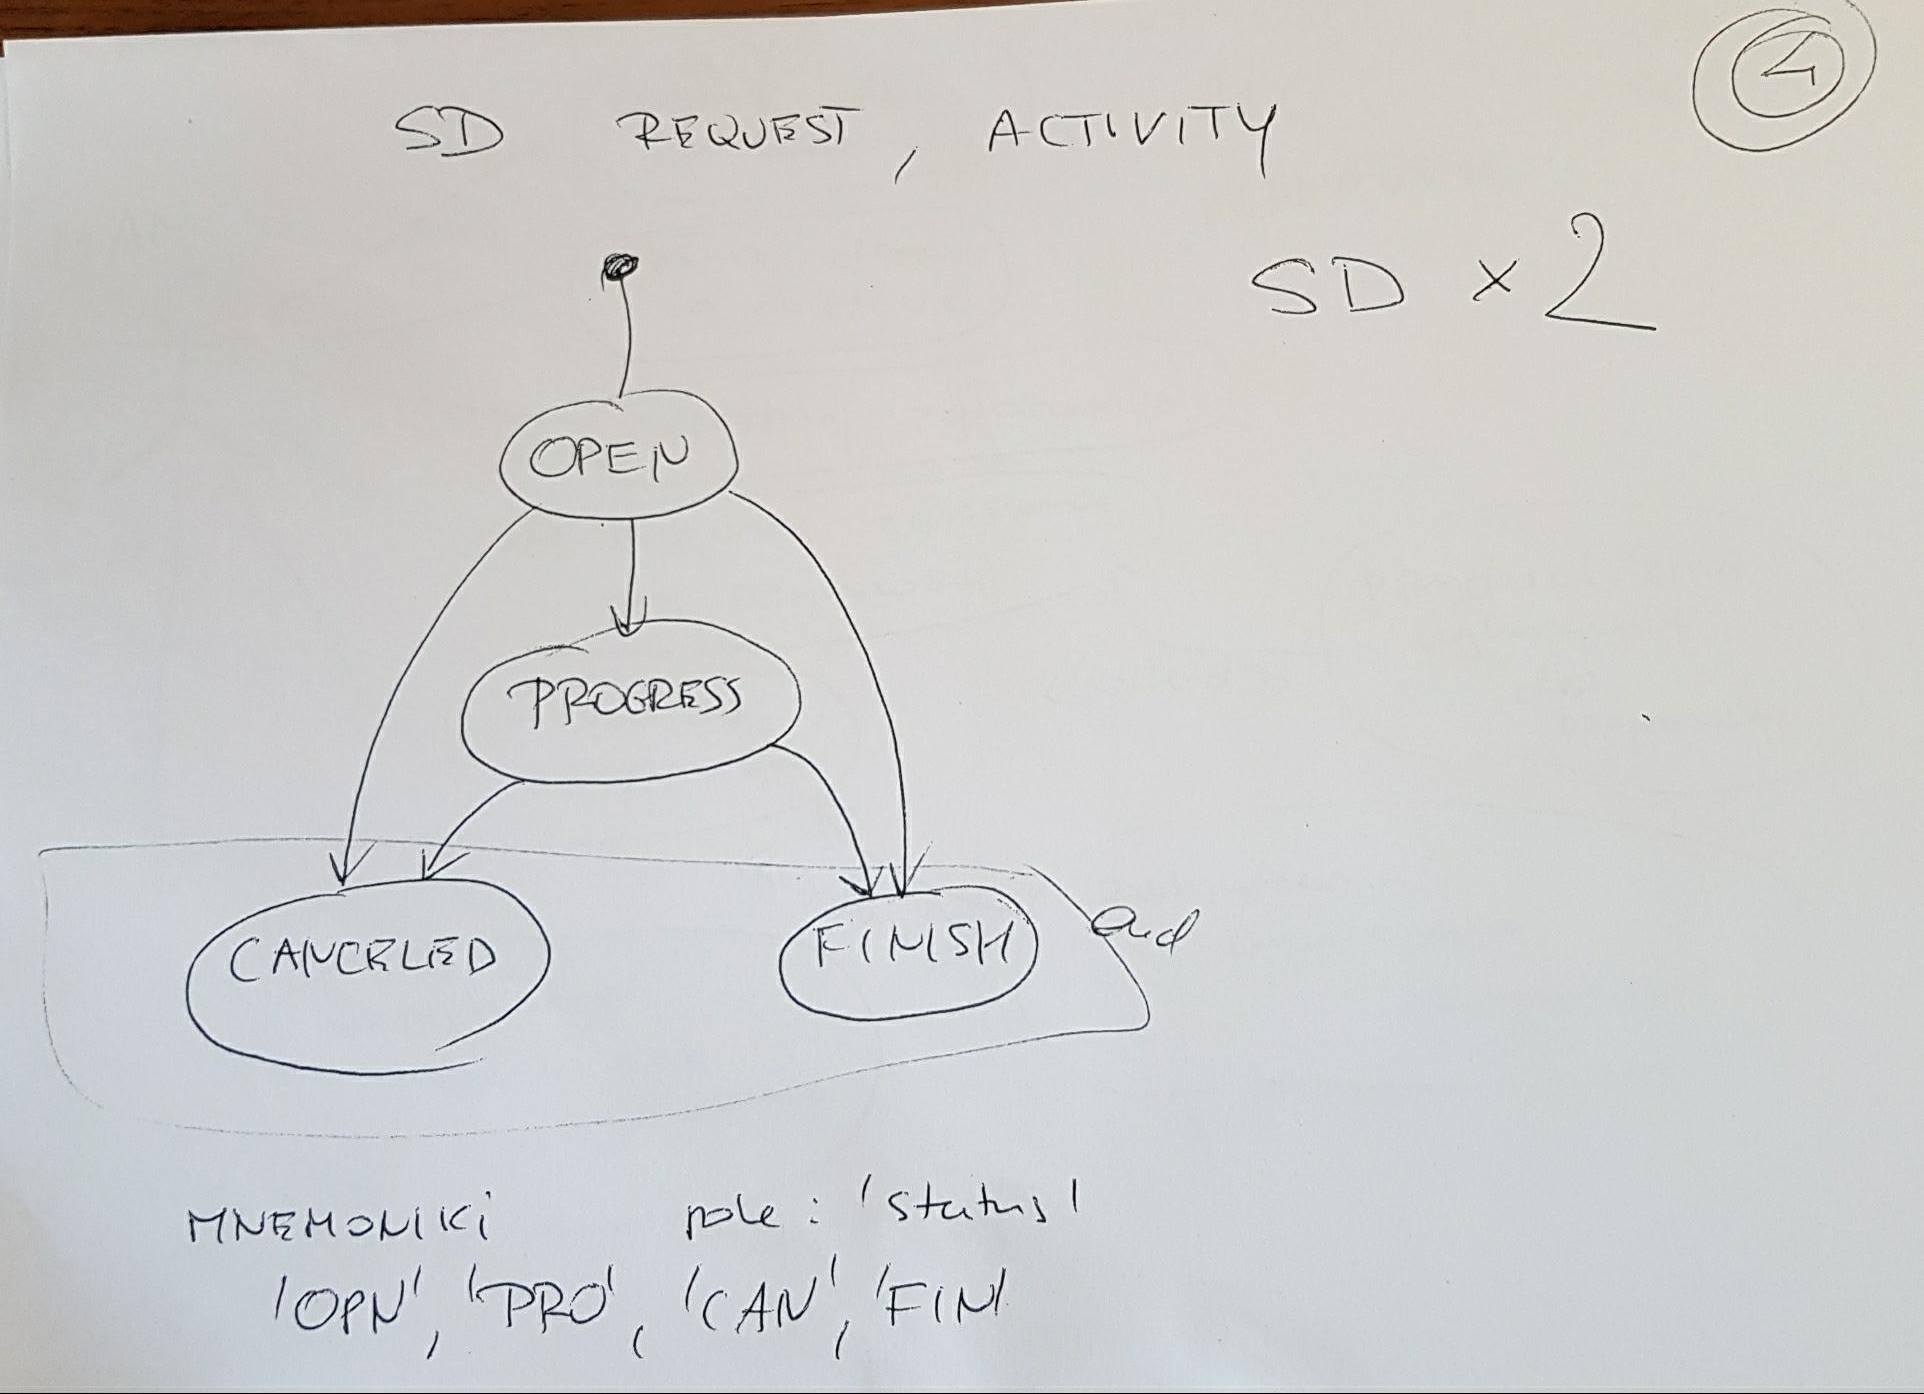 4
SD REQUEST, ACTIVITY
SD x 2
OPEN
PROGRESS
CANCELED
FINISH
end
MNEMONIKI pole: 'status'
'OPN', 'PRO', 'CAN', 'FIN'